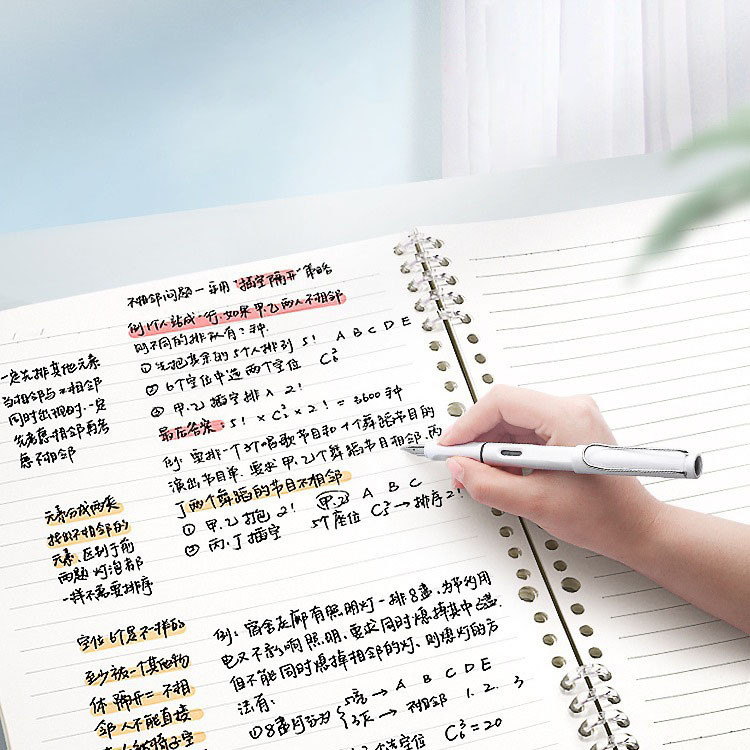 不相邻问题一采用"插空隔开"策略
例:7人站成一行,如果甲.乙两人不相邻
则不同的排队有?种.
①先把其余的5个人排列 5! A B C D E
②6个空位中选两个空位 C₆²
③甲.乙插空排入 2!
最后答案:5!×C₆²×2!=3600种
例:要排一个3个唱歌节目和4个舞蹈节目的
演出节目单.要求甲.乙2个舞蹈节目相邻.丙
丁两个舞蹈的节目不相邻
①甲.乙打包 2! 甲.乙 A B C
②丙.丁插空 5个座位 C₅²→排序2!
例:宿舍走廊有照明灯一排8盏,为节约用
电又不影响照明,要求同时熄掉其中3盏.
但不能同时熄掉相邻的灯,则熄灯的方
法有:
①8盏灯分为{5亮→ A B C D E
3灭→不相邻 1. 2. 3
个空位 C₆³=20
一定先排其他元素
当相邻与不相邻
同时出现时.一定
先考虑相邻再考
虑不相邻
元素分成两类
找出不相邻的
元素.区别于前
两题 灯泡都
一样不需要排序
空位6个是不一样的
至少被一个其他物
体隔开=不相
邻 人不能直接